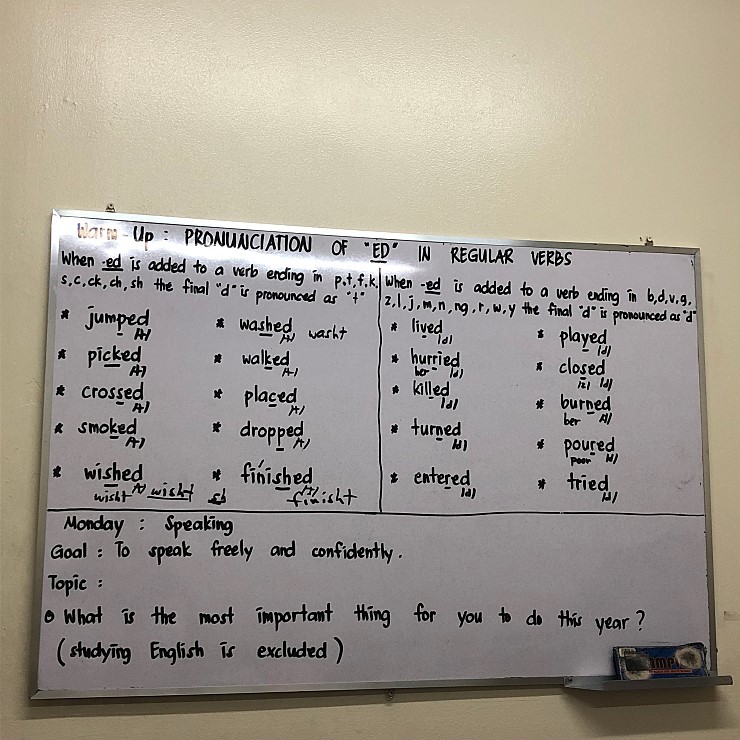 Warm-Up : PRONUNCIATION OF "ED" IN REGULAR VERBS
When -ed is added to a verb ending in p,t,f,k,
s,c,ck,ch,sh the final "d" is pronounced as "t"
* jumped
/t/
* picked
/t/
* crossed
/t/
* smoked
/t/
* wished
/t/
wisht wisht sh
* washed washt
/t/
* walked
/t/
* placed
/t/
* dropped
/t/
* finished
/t/
finisht
When -ed is added to a verb ending in b,d,v,g,
z,l,j,m,n,ng,r,w,y the final "d" is pronounced as "d"
* lived
/d/
* hurried
her /d/
* killed
/d/
* turned
/d/
* entered
/d/
* played
/d/
* closed
/z/ /d/
* burned
ber /d/
* poured
poor /d/
* tried
/d/
Monday : Speaking
Goal : To speak freely and confidently.
Topic :
What is the most important thing for you to do this year?
(studying English is excluded)